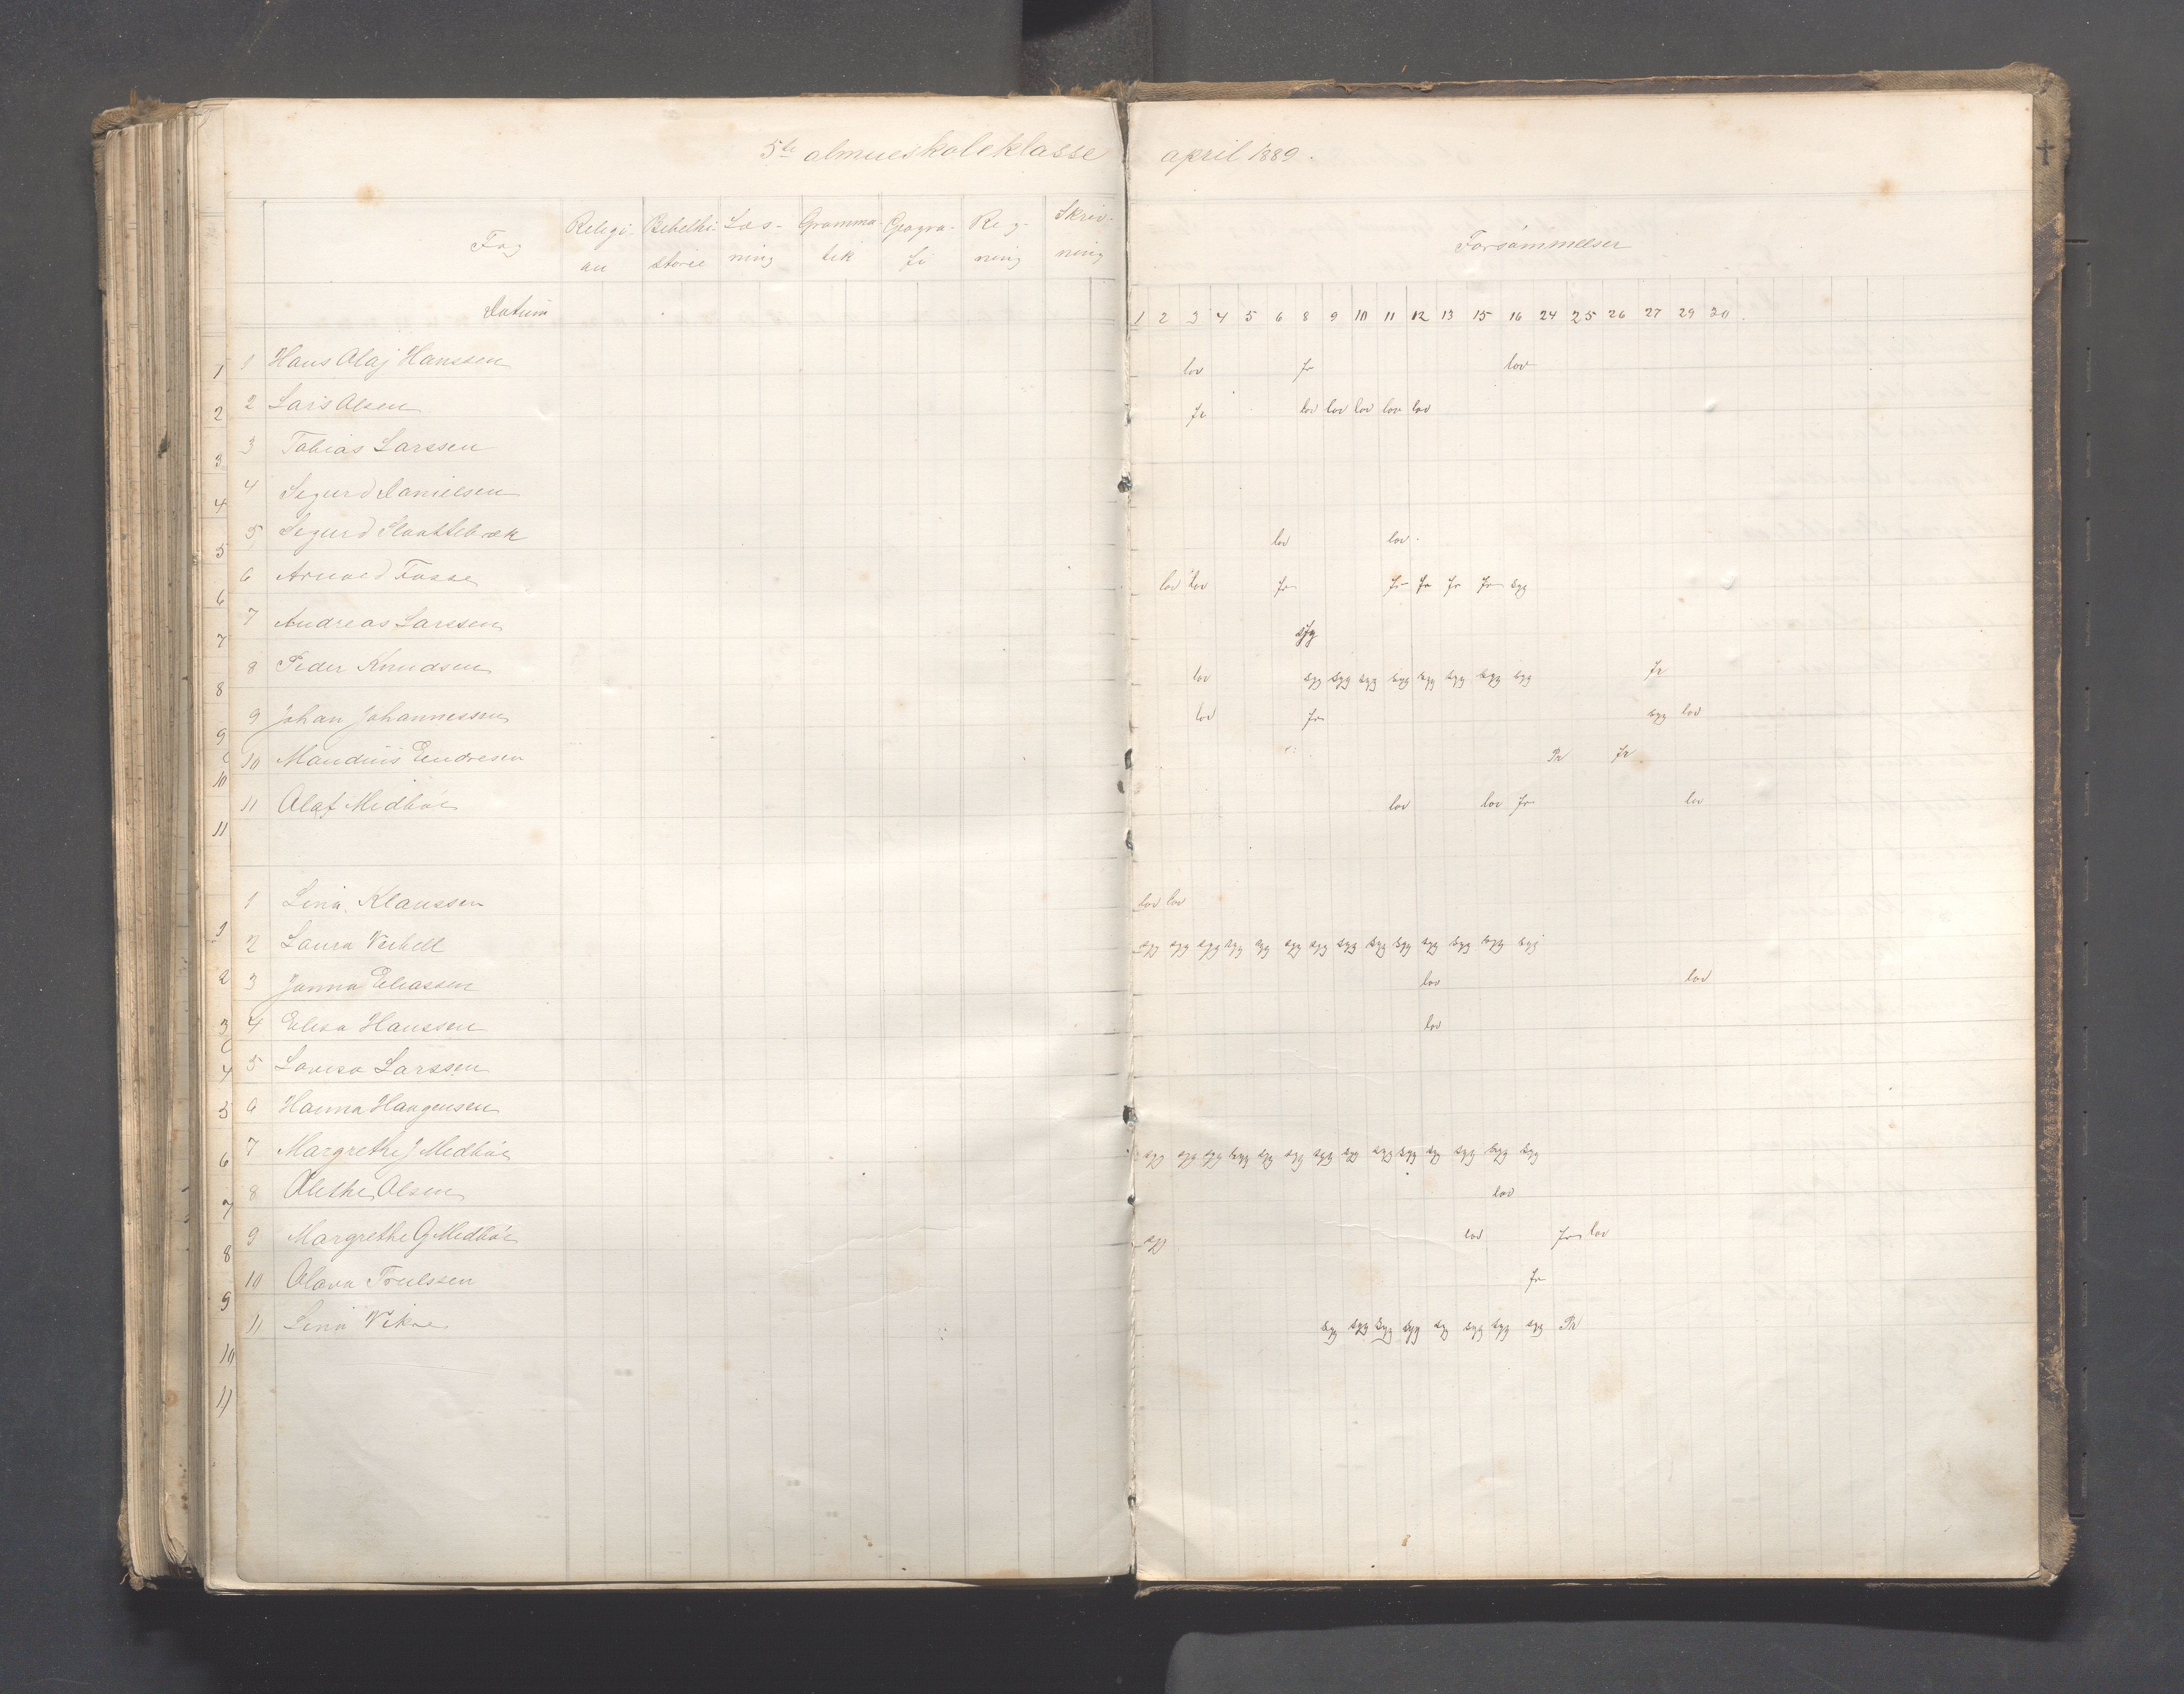 5te almueskoleklasse april 1889.
Fag Religi- Bibelhi- Læs- Gramma- Geogra- Reg- Skriv- Forsømmelser
on storie ning tik fi ning ning
Datum 1 2 3 4 5 6 8 9 10 11 12 13 15 16 24 25 26 27 29 30.
1 1 Hans Olaj Hanssen lov fr lov
2 2 Lars Olsen fr lov lov lov lov lov
3 3 Tobias Larssen
4 4 Sigurd Danielsen
5 5 Sigurd lov lov.
6 6 Arnold Fosse lov lov fr fr fr fr fr syg
7 7 Andreas Larssen syg
8 8 Peder Knudsen lov syg syg syg syg syg syg syg syg fr
9 9 Johan Johannessen lov fr syg lov
10 10 Mandius Endresen fr fr
11 11 Olaf Midbøe lov lov fr lov
1 1 Lina Klaussen lov lov
2 2 Laura syg syg syg syg syg syg syg syg syg syg syg syg syg syg
3 3 Janna Eliassen lov lov
4 4 Elisa Hanssen lov
5 5 Lovisa Larssen
6 6 Hanna Haugensen
7 7 Margrethe J Midbøe syg syg syg syg syg syg syg syg syg syg syg syg syg syg
8 8 Olethe Olsen lov
9 9 Margrethe G Midbøe syg lov fr lov
10 10 Olava Troelssen fr
11 11 Lina Vikse syg syg syg syg syg syg syg syg fr